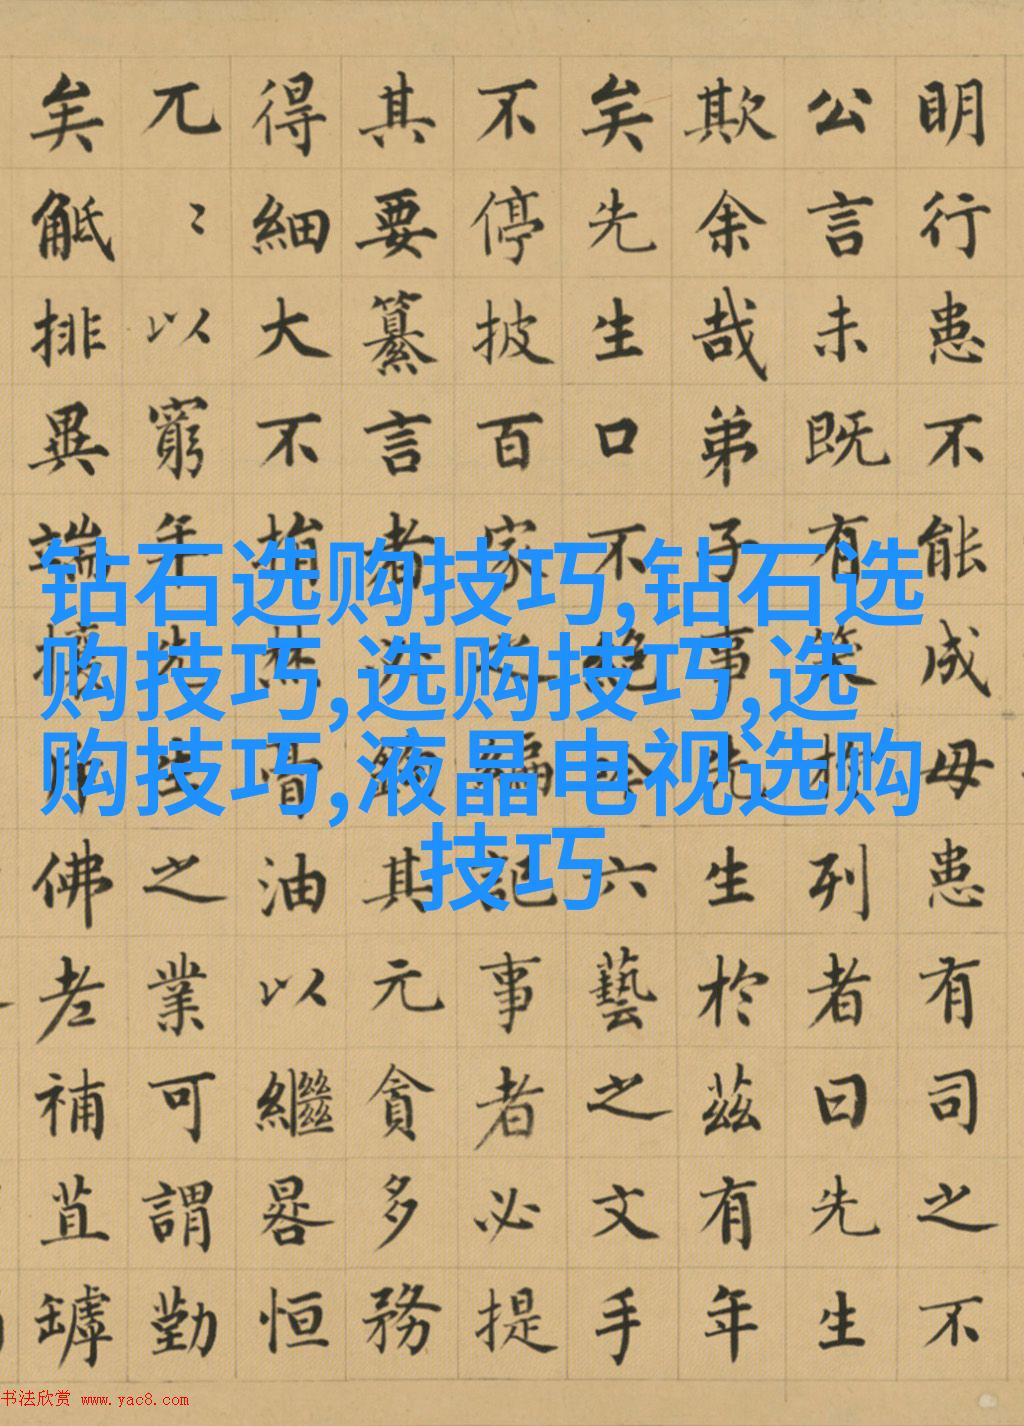 钻石选购技巧,钻石选
购技巧,选购技巧,选
购技巧,液晶电视选购
技巧
明行患不能成毋患有司之不
公言未既有笑於列者曰先生
欺余哉弟子事先生於茲有年
矣先生口不絕吟六藝之文手
不停披百家之編記事者必提
其要纂言者必鉤其元貪多務
得細大不捐焚膏油以繼晷恒
兀〻以窮年先生之業可謂勤
矣觝排異端攘斥佛老補苴罅
书法欣赏 www.yac8.com